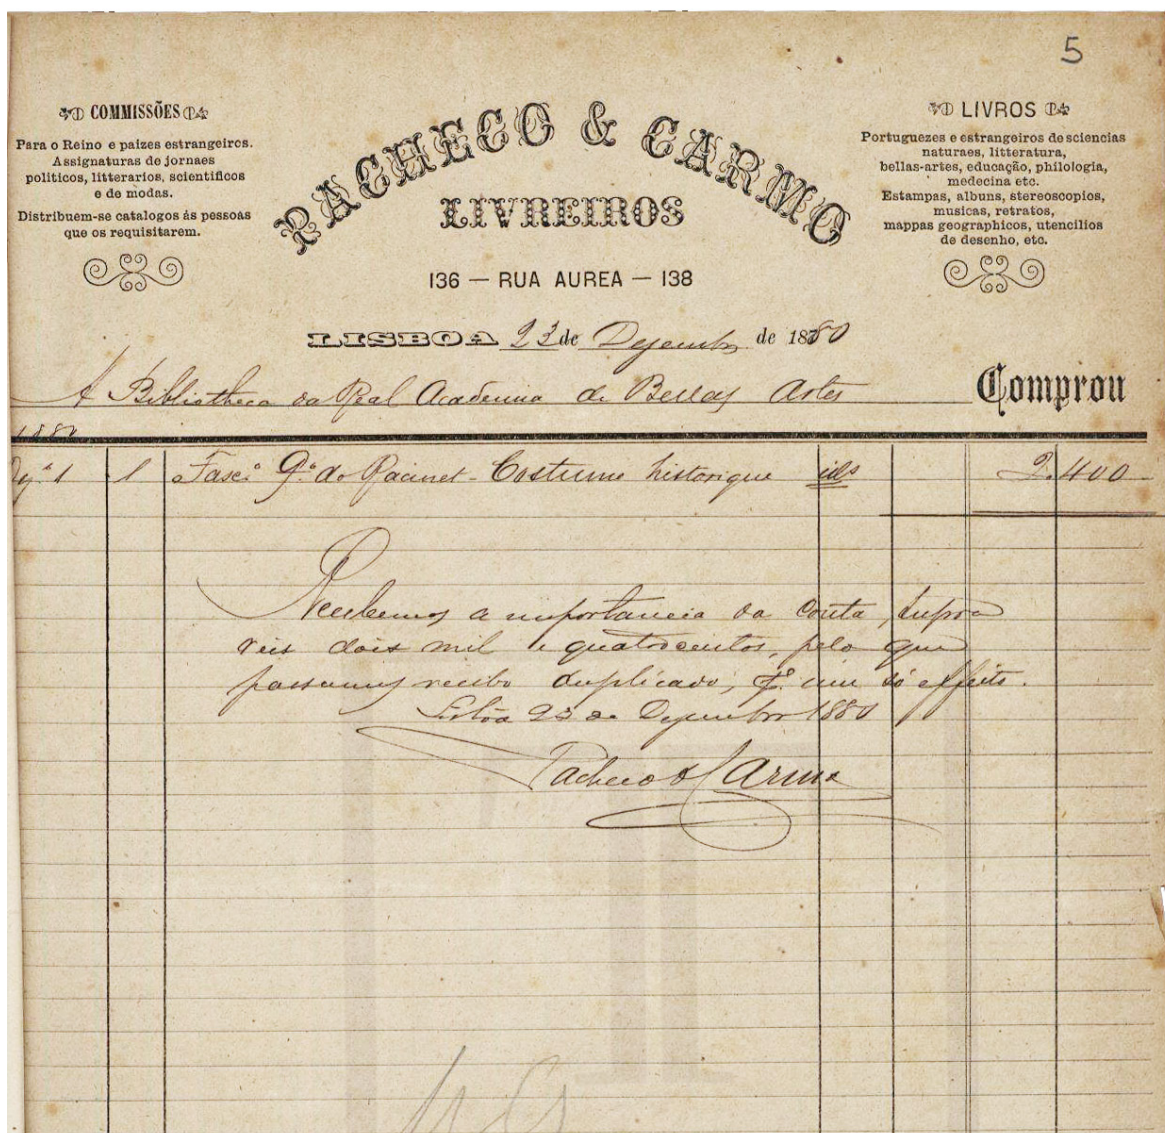 5
COMMISSÕES
Para o Reino e paizes estrangeiros.
Assignaturas de jornaes
politicos, litterarios, scientificos
e de modas.
Distribuem-se catalogos ás pessoas
que os requisitarem.
PACHECO & CARMO
LIVREIROS
136 — RUA AUREA — 138
LIVROS
Portuguezes e estrangeiros de sciencias
naturaes, litteratura,
bellas-artes, educação, philologia,
medecina etc.
Estampas, albuns, stereoscopios,
musicas, retratos,
mappas geographicos, utencilios
de desenho, etc.
LISBOA 23 de Dezembro de 1880
A Bibliotheca da Real Academia de Bellas Artes Comprou
1880
1 1 Fasc.º 9.º do Racinet - Costume historique 2.400
Recebemos a importancia da conta supra
reis dois mil e quatrocentos, pelo que
passamos recibo duplicado, p.ª um só effeito.
Lisboa 23 de Dezembro 1880
Pacheco & Carmo